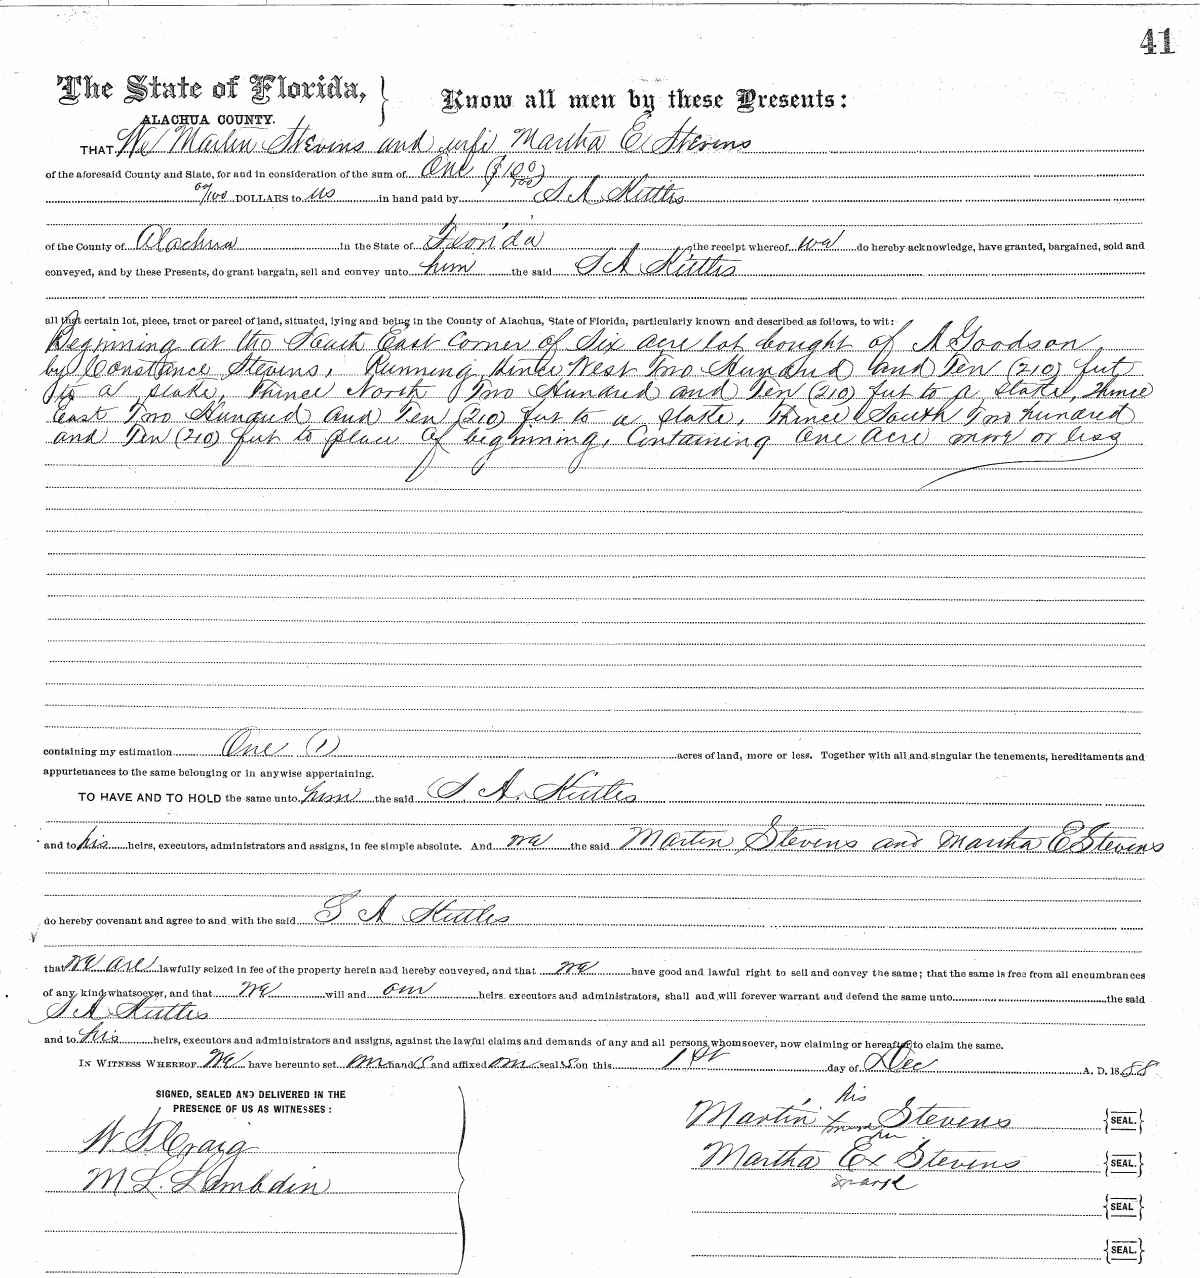 41
The State of Florida, } Know all men by these Presents:
ALACHUA COUNTY.
THAT We Martin Stevens and wife Martha E Stevens
of the aforesaid County and State, for and in consideration of the sum of One ($1 00/100)
00/100 DOLLARS to us in hand paid by S A Kittles
of the County of Alachua in the State of Florida the receipt whereof we do hereby acknowledge, have granted, bargained, sold and
conveyed, and by these Presents, do grant bargain, sell and convey unto him the said S A Kittles
all that certain lot, piece, tract or parcel of land, situated, lying and being in the County of Alachua, State of Florida, particularly known and described as follows, to wit:
Beginning at the South East Corner of Six acre lot bought of A Goodson
by Constance Stevens, Running thence West Two Hundred and Ten (210) feet
to a stake, Thence North Two Hundred and Ten (210) feet to a stake, Thence
East Two Hundred and Ten (210) feet to a stake, Thence South Two hundred
and Ten (210) feet to place of beginning, Containing One Acre more or less
containing my estimation One (1) acres of land, more or less. Together with all and singular the tenements, hereditaments and
appurtenances to the same belonging or in anywise appertaining.
TO HAVE AND TO HOLD the same unto him the said S. A. Kittles
and to his heirs, executors, administrators and assigns, in fee simple absolute. And we the said Martin Stevens and Martha E Stevens
do hereby covenant and agree to and with the said S A Kittles
that we are lawfully seized in fee of the property herein and hereby conveyed, and that we have good and lawful right to sell and convey the same; that the same is free from all encumbrances
of any kind whatsoever, and that we will and our heirs. executors and administrators, shall and will forever warrant and defend the same unto the said
S A Kittles
and to his heirs, executors and administrators and assigns, against the lawful claims and demands of any and all persons whomsoever, now claiming or hereafter to claim the same.
IN WITNESS WHEREOF We have hereunto set our hand s and affixed our seal s on this 1st day of Dec A. D. 18 88
SIGNED, SEALED AND DELIVERED IN THE
PRESENCE OF US AS WITNESSES:
his
Martin Stevens {SEAL.}
mark
W F Craig
her
Martha E x Stevens {SEAL.}
mark
M L. Lambdin
{SEAL}
{SEAL.}